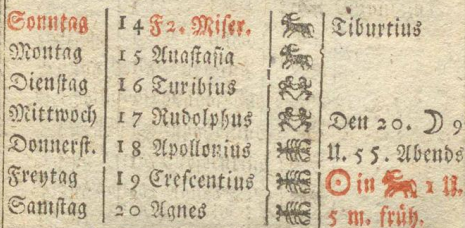 Sonntag 14 F2. Miser. Tiburtius
Montag 15 Anastasia
Dienstag 16 Turibius
Mittwoch 17 Rudolphus Den 20. ☽ 9
Donnerst. 18 Apollonius U. 55. Abends
Freytag 19 Crescentius ☉ in ♉ 1 U.
Samstag 20 Agnes 5 m. früh.